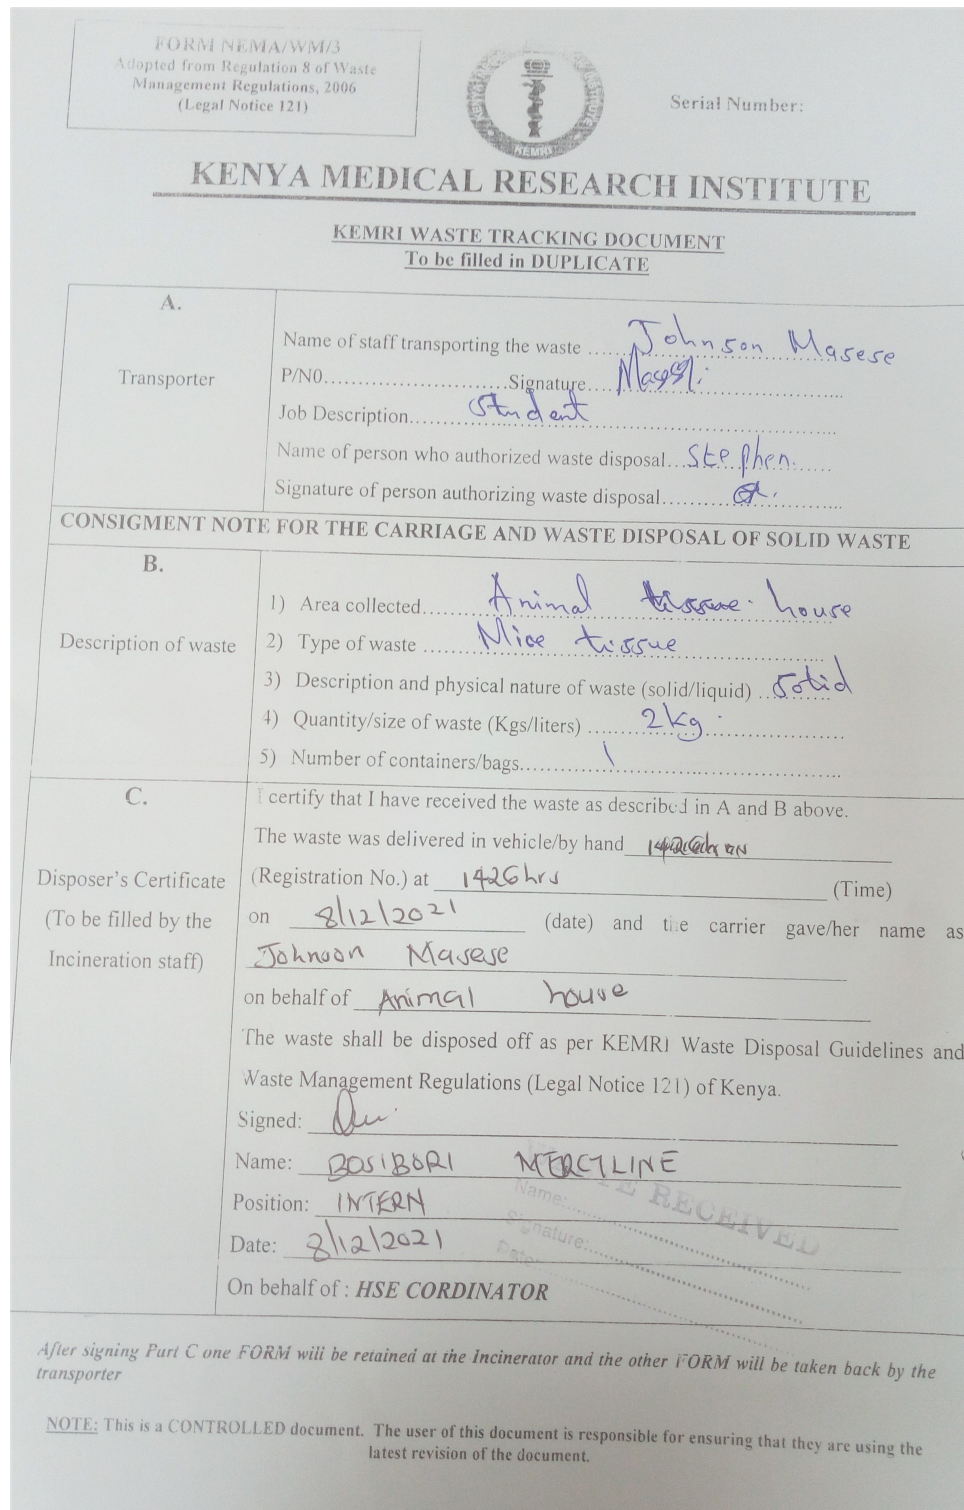 FORM NEMA/WM/3
Adopted from Regulation 8 of Waste
Management Regulations, 2006
(Legal Notice 121)
KEMRI
Serial Number:
KENYA MEDICAL RESEARCH INSTITUTE
KEMRI WASTE TRACKING DOCUMENT
To be filled in DUPLICATE
A.
Transporter
Name of staff transporting the waste Johnson Masese
P/N0. Signature
Job Description student
Name of person who authorized waste disposal Stephen.
Signature of person authorizing waste disposal
CONSIGMENT NOTE FOR THE CARRIAGE AND WASTE DISPOSAL OF SOLID WASTE
B.
Description of waste
1) Area collected Animal house
2) Type of waste Mice tissue
3) Description and physical nature of waste (solid/liquid) solid
4) Quantity/size of waste (Kgs/liters) 2kg
5) Number of containers/bags 1
C.
Disposer's Certificate
(To be filled by the
Incineration staff)
I certify that I have received the waste as described in A and B above.
The waste was delivered in vehicle/by hand
(Registration No.) at 1426hrs (Time)
on 8/12/2021 (date) and the carrier gave/her name as
Johnson Masese
on behalf of Animal house
The waste shall be disposed off as per KEMRI Waste Disposal Guidelines and
Waste Management Regulations (Legal Notice 121) of Kenya.
Signed:
Name: BOSIBORI MERCYLINE
Position: INTERN
Date: 8/12/2021
On behalf of : HSE CORDINATOR
RECEIVED
Name:
Signature:
Date:
After signing Part C one FORM will be retained at the Incinerator and the other FORM will be taken back by the
transporter
NOTE: This is a CONTROLLED document. The user of this document is responsible for ensuring that they are using the
latest revision of the document.